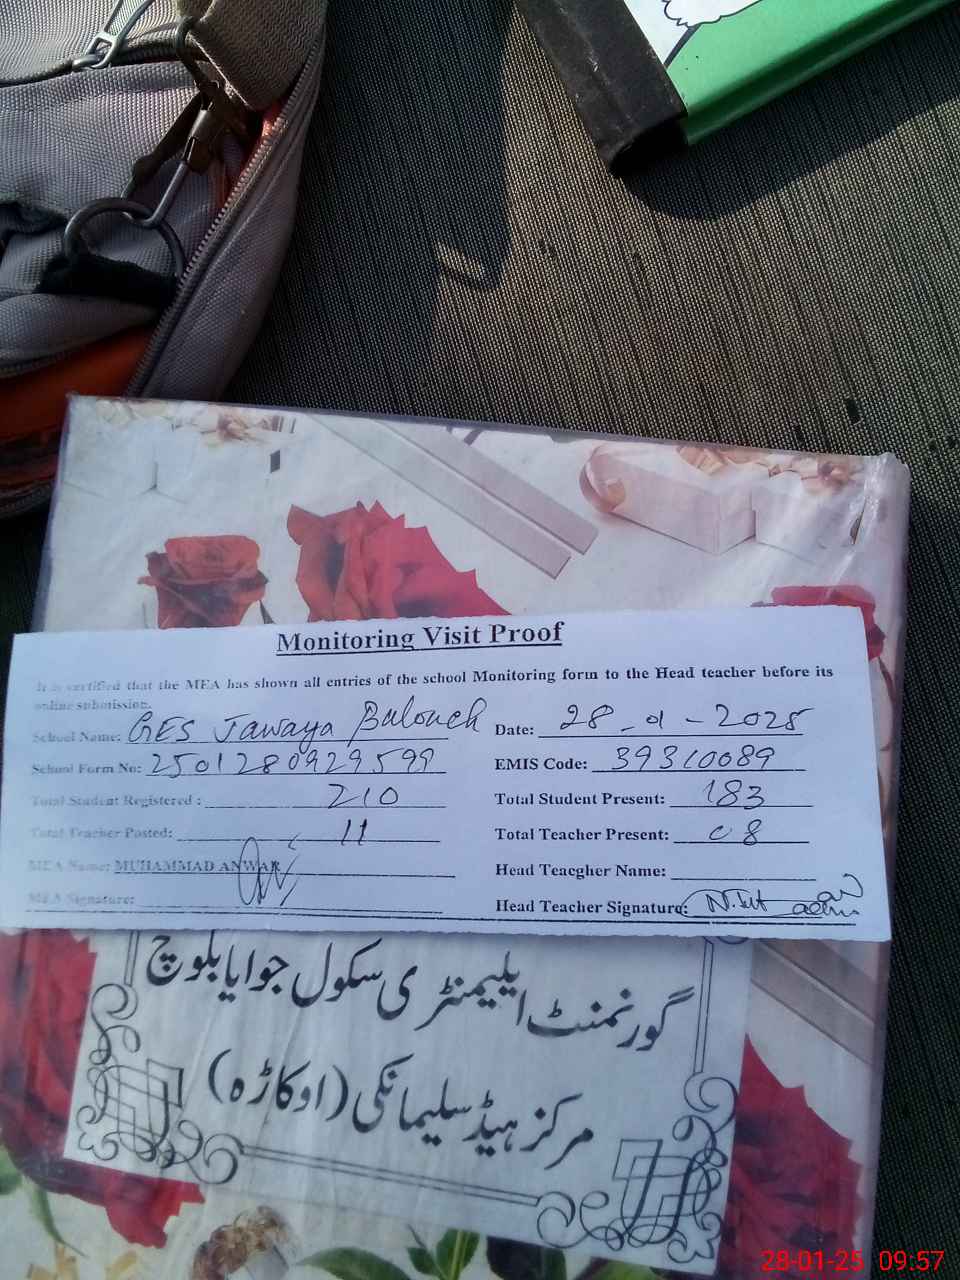 Monitoring Visit Proof
It is certified that the MEA has shown all entries of the school Monitoring form to the Head teacher before its
online submission.
School Name: GES Jawaya Balouch
Date: 28-01-2025
School Form No: 2501280929599
EMIS Code: 39310089
Total Student Registered : 210
Total Student Present: 183
Total Teacher Posted: 11
Total Teacher Present: 08
MEA Name: MUHAMMAD ANWAR
Head Teacgher Name:
MEA Signature:
Head Teacher Signature:
گورنمنٹ ایلیمنٹری سکول جوایا بلوچ
مرکز ہیڈ سلیمانکی (اوکاڑہ)
28-01-25 09:57